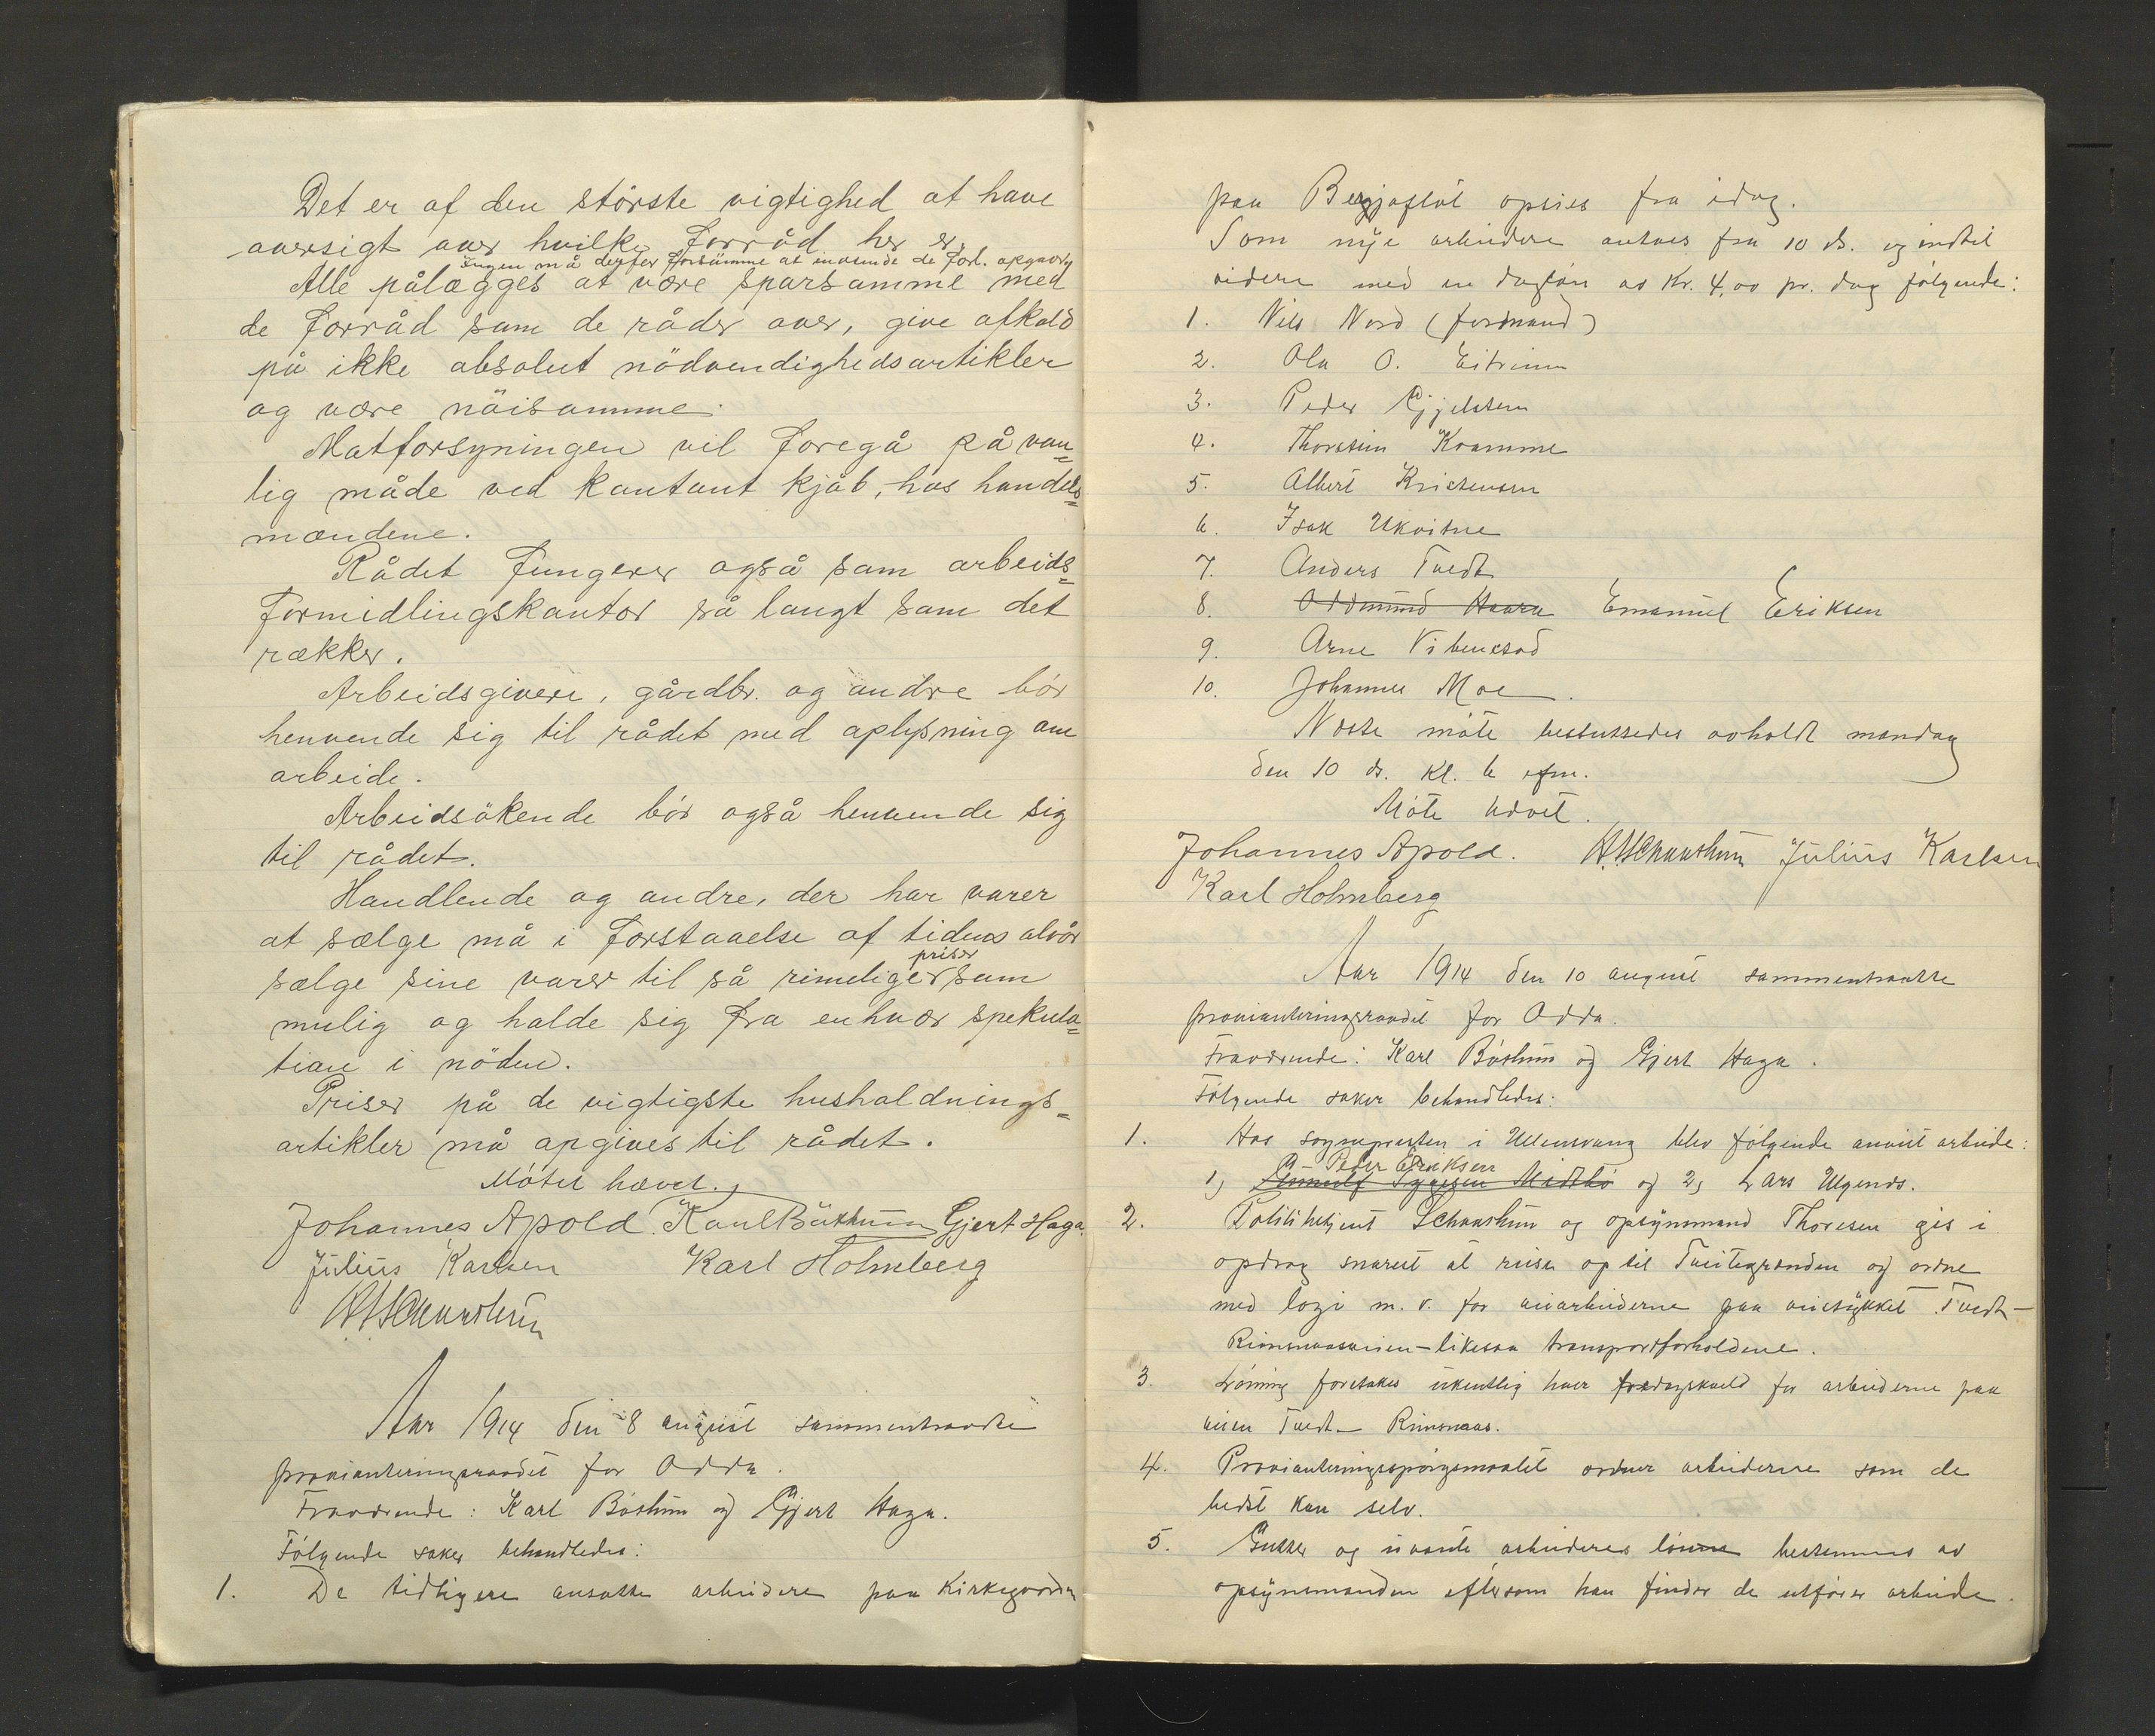 Det er af den störste vigtighed at have
oversigt over hvilke forråd her er.
Ingen må derfor forsömme at innsende de forl. opgaver
Alle pålægges at være sparsomme med
de forråd som de råder over, give afkald
på ikke absolut nödvendighedsartikler
og være nöisomme.
Matforsyningen vil foregå på van=
lig måde ved kontant kjöb, hos handels=
mændene.
Rådet fungerer også som arbeids=
formidlingskontor så langt som det
rækker.
Arbeidsgivere, gårdbr. og andre bör
henvende sig til rådet med oplysning om
arbeide.
Arbeidsökende bör også henvende sig
til rådet.
Handlende og andre, der har varer
at sælge må i forstaaelse af tidens alvår
priser
sælge sine varer til så rimelige som
mulig og holde sig fra enhver spekula=
tion i nöden.
Priser på de vigtigste husholdnings=
artikler må opgives til rådet.
Mötet hævet.
Johannes Apold. Karl Bústhun Gjert Haga.
Julius Karlsen Karl Holmberg
Aar 1914 den 8 august sammentraadte
provianteringsraadet for Odda.
Fraværende: Karl Bústhun og Gjert Haga.
Følgende saker behandledes:
1. De tidligere ansatte arbeidere paa Kirkegaarden
paa opsies fra idag.
Som nye arbeidere antaes fra 10 ds. og indtil
videre med en dagløn av Kr. 4,00 pr. dag følgende:
1. Nils Nord (formand)
2. Ola O. Eitrheim
3. Peder Gjelsten
4. Thorstein Kramme
5. Albert Kristensen
6. Isak Ukvitne
7. Anders Tvedt
8. Oddmund Haara Emanuel Eriksen
9. Arne
10. Johannes Moe.
Næste möte besluttedes avholdt mandag
den 10 ds. kl. 6 efm.
Möte hævet.
Johannes Apold. Julius Karlsen
Karl Holmberg
Aar 1914 den 10 august sammentraadte
provianteringsraadet for Odda.
Fraværende: Karl Bústhun og Gjert Haga.
Følgende saker behandledes:
1. Hos sogneprsten i Ullensvang blev følgende anvist arbeide:
Peder Eriksen
1) Midtbö og 2) Lars
2. Politibetjent Schanshun og opsynsmand Thoresen gis i
opdrag snarest at reise op til Tveitegrenden og ordne
med logi m. v. for veiarbeiderne paa veistykket Tvedt -
Rinsnaasveien - likesaa transportforholdene.
3. Lønning foretakes ukentlig hver fredagskveld for arbeiderne paa
veien Tvedt - Rinsnaas.
4. Provianteringsspörgsmaalet ordner arbeiderne som de
bedst kan selv.
5. Gutter og uvante arbeideres lønne bestemmes av
opsynsmanden eftersom han finder de utfører arbeide.